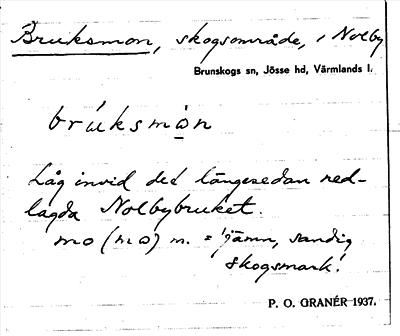 Bruksmon, skogsområde, i Nolby
Brunskogs sn, Jösse hd, Värmlands l.
brúksmòn
Låg invid det längesedan ned-
lagda Nolbybruket.
mo (mo) m. = 'jämn, sandig
skogsmark'.
P. O. GRANÉR 1937.